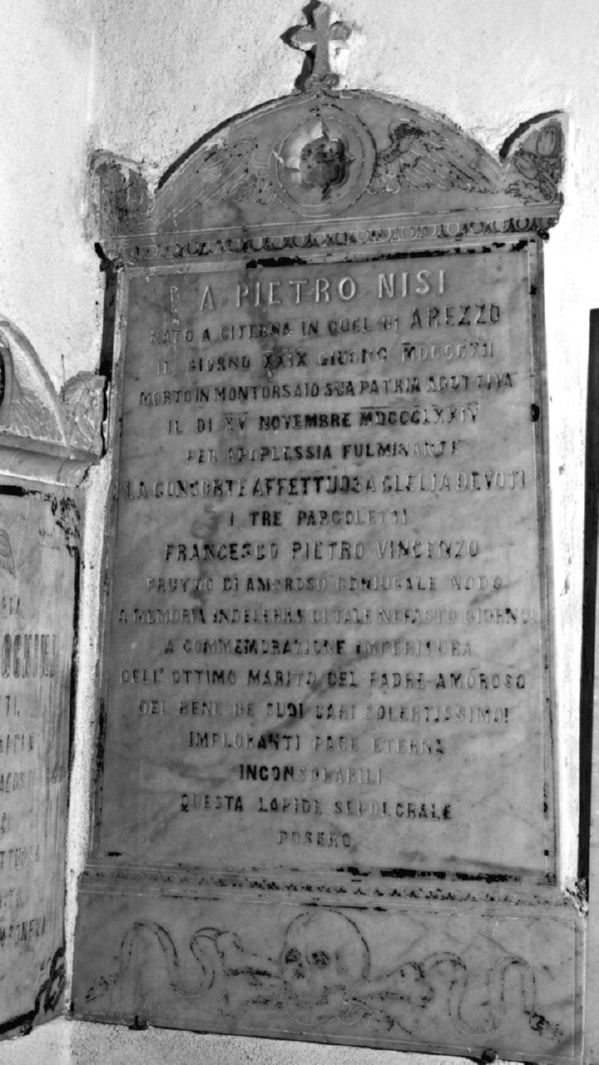 A PIETRO NISI
NATO A CITERNA IN QUEL DI AREZZO
IL GIORNO XXIX GIUGNO
MORTO IN MONTORSAIO SUA PATRIA ADOTTIVA
IL DI XV NOVEMBRE MDCCCLXXIV
PER APOPLESSIA FULMINANTE
LA CONSORTE AFFETTUOSA CLELIA DEVOTI
I TRE PARGOLETTI
FRANCESCO PIETRO VINCENZO
FRUTTO DI AMOROSO CONJUGALE NODO
A MEMORIA INDELEBILE DI TALE NEFASTO GIORNO
A COMMEMORAZIONE IMPERITURA
DELL' OTTIMO MARITO DEL PADRE AMOROSO
DEL BENE DE SUOI CARI SOLERTISSIMO
IMPLORANTI PACE ETERNA
INCONSOLABILI
QUESTA LAPIDE SEPOLCRALE
POSERO